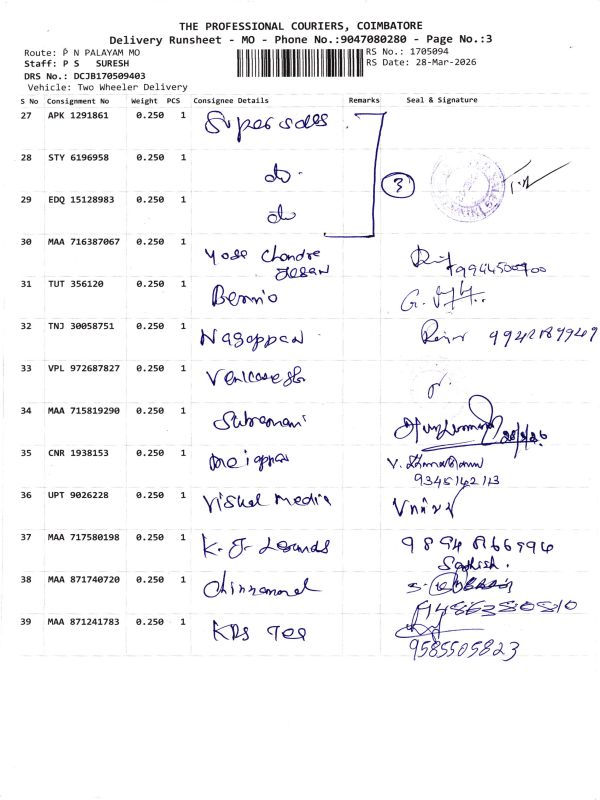 THE PROFESSIONAL COURIERS, COIMBATORE
Delivery Runsheet - MO - Phone No.:9047080280 - Page No.:3
Route: P N PALAYAM MO
RS No.: 1705094
Staff: P S SURESH
RS Date: 28-Mar-2026
DRS No.: DCJB170509403
Vehicle: Two Wheeler Delivery
S No Consignment No Weight PCS Consignee Details Remarks Seal & Signature
27 APK 1291861 0.250 1 Super sales
28 STY 6196958 0.250 1 do
3
29 EDQ 15128983 0.250 1 do
30 MAA 716387067 0.250 1 Yose Chandre
31 TUT 356120 0.250 1
32 TNJ 30058751 0.250 1 Nagappan
33 VPL 972687827 0.250 1
34 MAA 715819290 0.250 1 Subramani
35 CNR 1938153 0.250 1
9345142113
36 UPT 9026228 0.250 1 Vishal Media
37 MAA 717580198 0.250 1 K. J.
Sathish.
38 MAA 871740720 0.250 1
39 MAA 871241783 0.250 1
9585505823